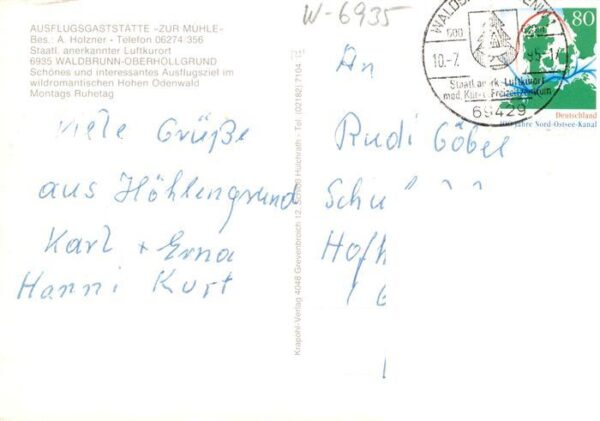 AUSFLUGSGASTSTÄTTE »ZUR MÜHLE«
Bes.: A. Holzner - Telefon 06274/356
Staatl. anerkannter Luftkurort
6935 WALDBRUNN-OBERHÖLLGRUND
Schönes und interessantes Ausflugsziel im
wildromantischen Hohen Odenwald
Montags Ruhetag
W-6935
Viele Grüße
aus Höhlengrund
Karl + Erna
Hanni Kurt
Krapohl-Verlag 4048 Grevenbroich 12, Hülchrath - Tel. (02182) 7104
An
Rudi Göbel
Schu
Hofh
10.-7.
Staatl. anerk. Luftkurort
med. Kur- Freizeitzentrum
69429
80
Deutschland
100 Jahre Nord-Ostsee-Kanal